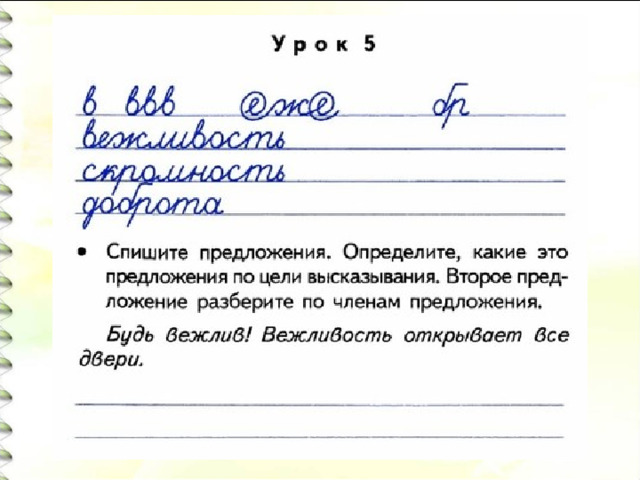 Урок 5
в ввв еже бр
вежливость
скромность
доброта
• Спишите предложения. Определите, какие это
предложения по цели высказывания. Второе пред-
ложение разберите по членам предложения.
Будь вежлив! Вежливость открывает все
двери.